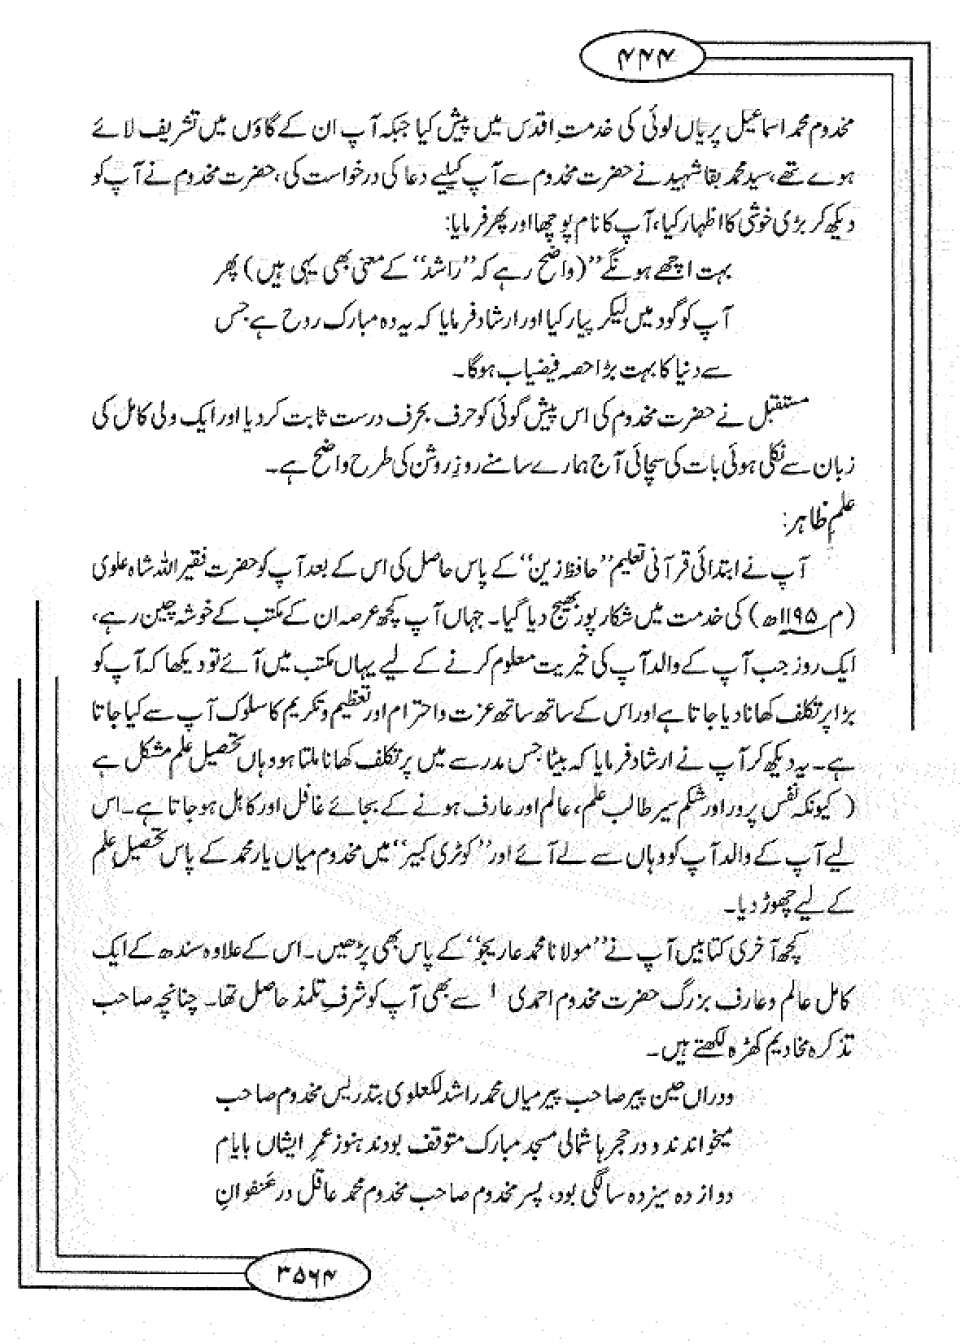 ۴۴۴
مخدوم محمد اسماعیل پریاں لوئی کی خدمتِ اقدس میں پیش کیا جبکہ آپ ان کے گاؤں میں تشریف لائے
ہوے تھے، سید محمد بقا شہید نے حضرت مخدوم سے آپ کیلیے دعا کی درخواست کی، حضرت مخدوم نے آپ کو
دیکھ کر بڑی خوشی کا اظہار کیا، آپ کا نام پوچھا اور پھر فرمایا:
بہت اچھے ہونگے" (واضح رہے کہ "راشد" کے معنی بھی یہی ہیں) پھر
آپ کو گود میں لیکر پیار کیا اور ارشاد فرمایا کہ یہ وہ مبارک روح ہے جس
سے دنیا کا بہت بڑا حصہ فیضیاب ہوگا۔
مستقبل نے حضرت مخدوم کی اس پیش گوئی کو حرف بحرف درست ثابت کردیا اور ایک ولی کامل کی
زبان سے نکلی ہوئی بات کی سچائی آج ہمارے سامنے روزِ روشن کی طرح واضح ہے۔
علمِ ظاہر:
آپ نے ابتدائی قرآنی تعلیم "حافظ زین" کے پاس حاصل کی اس کے بعد آپ کو حضرت فقیر اللہ شاہ علوی
(م ۱۱۹۵ھ) کی خدمت میں شکارپور بھیج دیا گیا۔ جہاں آپ کچھ عرصہ ان کے مکتب کے خوشہ چین رہے،
ایک روز جب آپ کے والد آپ کی خیریت معلوم کرنے کے لیے یہاں مکتب میں آئے تو دیکھا کہ آپ کو
بڑا پرتکلف کھانا دیا جاتا ہے اور اس کے ساتھ ساتھ عزت و احترام اور تعظیم و تکریم کا سلوک آپ سے کیا جاتا
ہے۔ یہ دیکھ کر آپ نے ارشاد فرمایا کہ بیٹا جس مدرسے میں پرتکلف کھانا ملتا ہو وہاں تحصیل علم مشکل ہے
(کیونکہ نفس پرور اور شکم سیر طالب علم، عالم اور عارف ہونے کے بجائے غافل اور کاہل ہوجاتا ہے۔ اس
لیے آپ کے والد آپ کو وہاں سے لے آئے اور "کوٹری کبیر" میں مخدوم میاں یار محمد کے پاس تحصیل علم
کے لیے چھوڑ دیا۔
کچھ آخری کتابیں آپ نے "مولانا محمد عاریجو" کے پاس بھی پڑھیں۔ اس کے علاوہ سندھ کے ایک
کامل عالم و عارف بزرگ حضرت مخدوم احمدی ۱ سے بھی آپ کو شرفِ تلمذ حاصل تھا۔ چنانچہ صاحب
تذکرہ مخادیم کھڑہ لکھتے ہیں۔
ودراں حین پیر صاحب پیر میاں محمد راشد لکعلوی بتدریس مخدوم صاحب
میخواندند و در حجرہا شمالی مسجد مبارک متوقف بودند ہنوز عمرِ ایشاں بایام
دوازدہ سیزدہ سالگی بود، پسر مخدوم صاحب مخدوم محمد عاقل در عَنفوانِ
۳۵۶۴